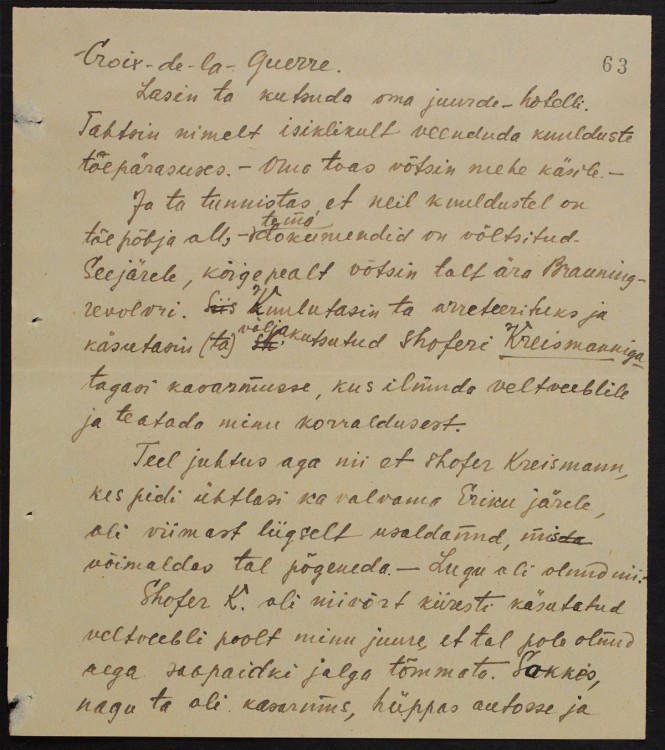 Croix-de-la-Guerre.
63
Lasin ta kutsuda oma juurde - hotelli.
Tahtsin nimelt isiklikult veenduda kuulduste
tõepärasuses. - Oma toas võtsin mehe käsile. -
Ja ta tunnistas, et neil kuuldustel on
tõepõhja all, - tema dokumendid on võltsitud.
Seejärele, kõigepealt võtsin talt ära Brauning-
revolvri. Siis Kuulutasin ta arreteerituks ja
käsutasin (ta) väljakutsutud shoferi Kreismanniga
tagasi kasarmusse, kus ilmuda veltveeblile
ja teatada minu korraldusest.
Teel juhtus aga nii et shofer Kreismann,
kes pidi ühtlasi ka valvama Eriku järele,
oli viimast liigselt usaldanud, mis
võimaldas tal põgeneda. - Lugu oli olnud nii: -
Shofer K. oli niivõrt kiiresti käsutatud
veltveebli poolt minu juure, et tal pole olnud
aega saapaidki jalga tõmmata. Sokkis,
nagu ta oli kasarmus, hüppas autosse ja